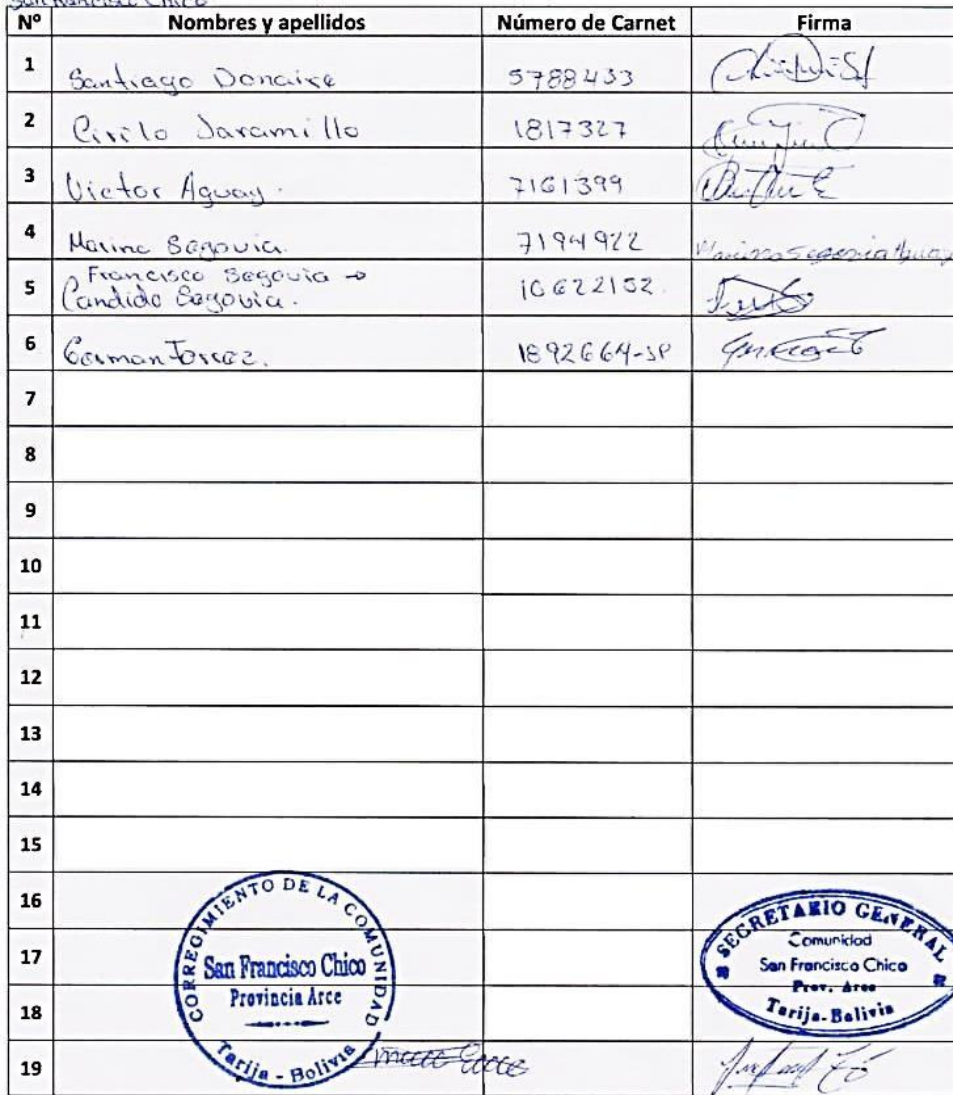 San Francisco Chico
Nº Nombres y apellidos Número de Carnet Firma
1 Santiago Donaire 5788433
2 Cirilo Jaramillo 1817327
3 Victor Aguay. 7161399
4 Marina Segovia. 7194922 Marina Segovia Aguay
5 Francisco Segovia →
Candido Segovia. 10622152.
6 German Torrez. 1892664-SP
7
8
9
10
11
12
13
14
15
16
17
18
19
CORREGIMIENTO DE LA COMUNIDAD
San Francisco Chico
Provincia Arce
Tarija - Bolivia
SECRETARIO GENERAL
Comunidad
San Francisco Chico
Prov. Arce
Tarija-Bolivia